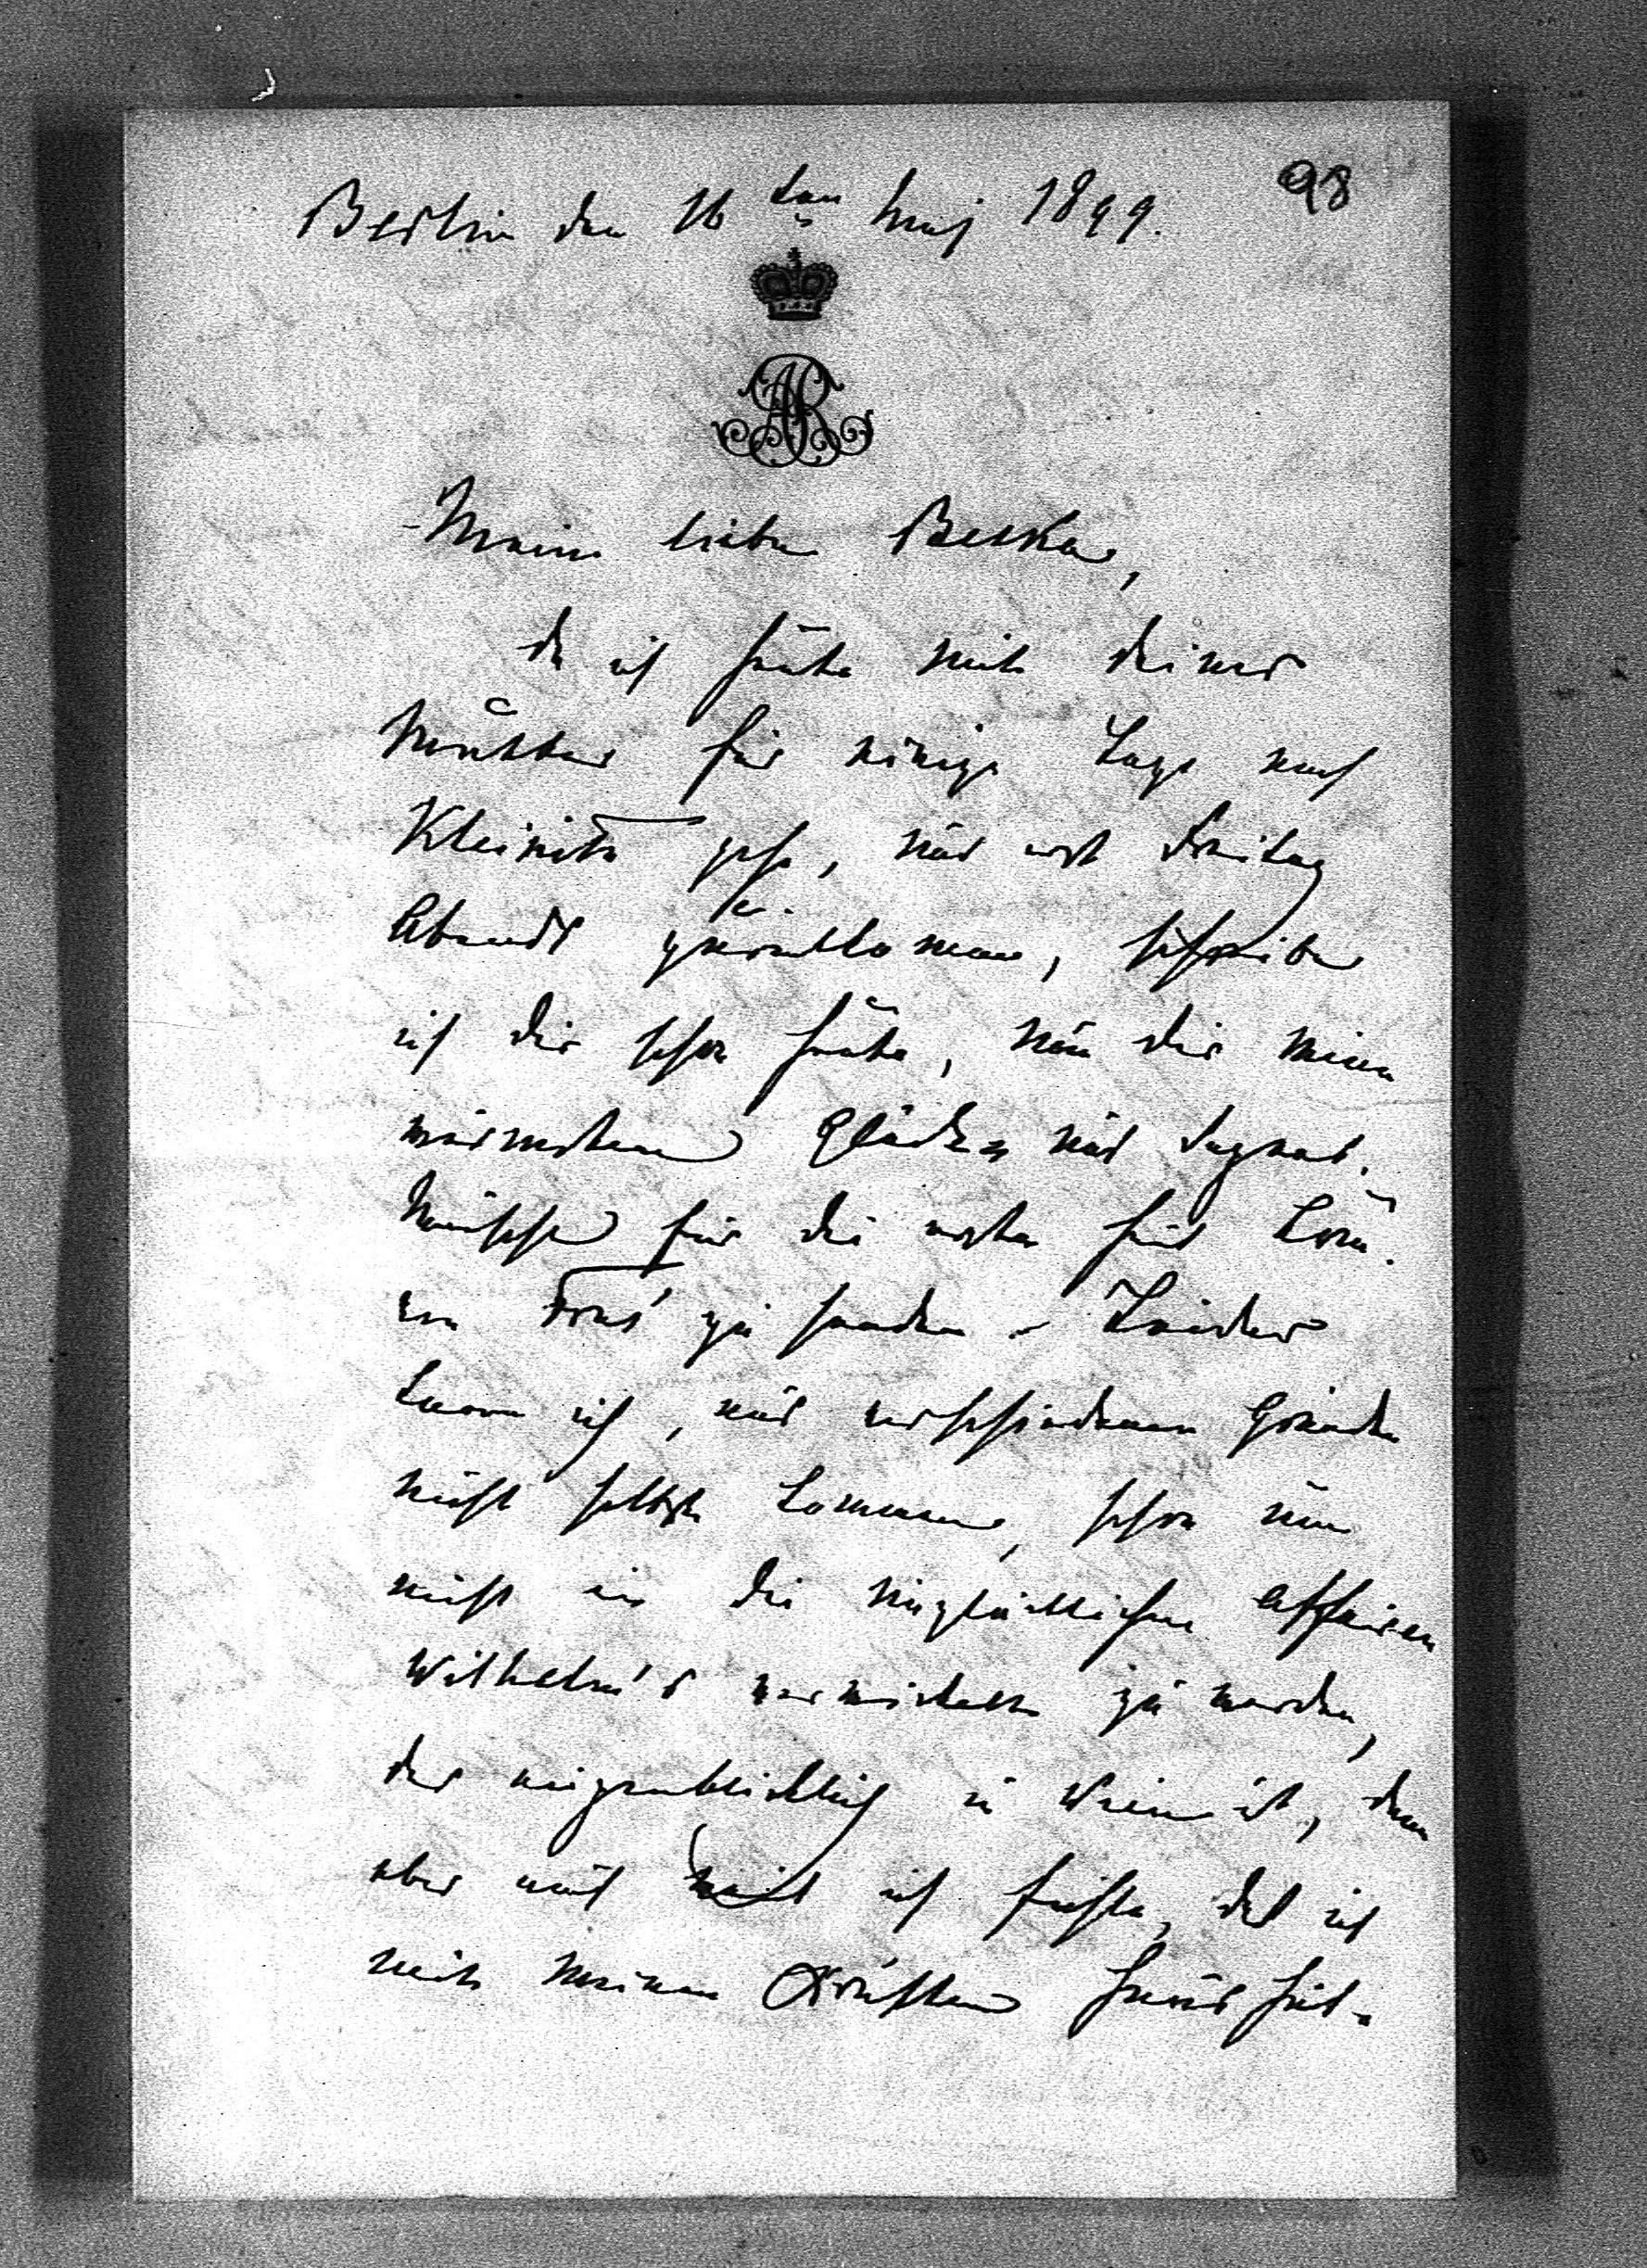 98
Berlin den 16ten Mai 1899.
AR
Meine liebe Betka,
da ich heute mit deiner
Mutter für einige Tage nach
Kleinitz gehe, und erst Freitag
Abends zurückkomme, schreibe
ich dir schon heute, um dir meine
wärmsten Glück und Segens-
wünsche für die erste heil. Com-
union zu senden. Leider
kann ich, aus verschiedenen Gründen
nicht selbst kommen, schon um
nicht in die unglücklichen Affairen
Wilhelm's verwickelt zu werden,
der augenblicklich in Wien ist, dann
aber auch weil ich fühle, daß ich
mit meinen Kräften Haus hal-